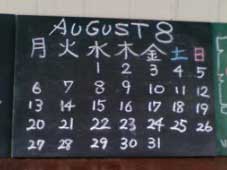 AUGUST 8
月 火 水 木 金 土 日
1 2 3 4 5
6 7 8 9 10 11 12
13 14 15 16 17 18 19
20 21 22 23 24 25 26
27 28 29 30 31